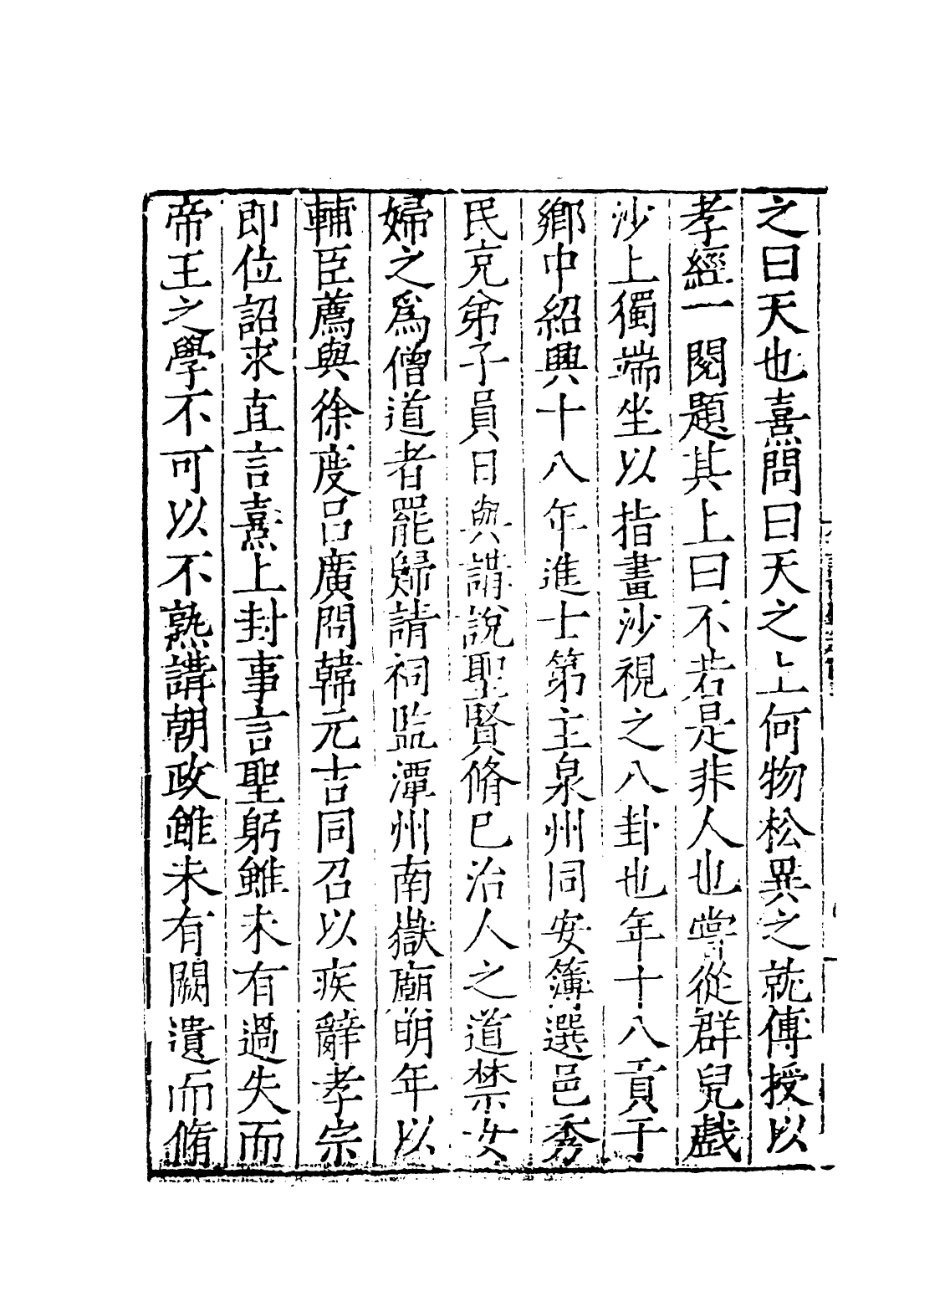 之曰天也熹問曰天之上何物松異之就傅授以
孝經一閱題其上曰不若是非人也嘗從群兒戲
沙上獨端坐以指畫沙視之八卦也年十八貢于
鄉中紹興十八年進士第主泉州同安簿選邑秀
民充弟子員日與講說聖賢脩已治人之道禁女
婦之爲僧道者罷歸請祠監潭州南嶽廟明年以
輔臣薦與徐度呂廣問韓元吉同召以疾辭孝宗
即位詔求直言熹上封事言聖躬雖未有過失而
帝王之學不可以不熟講朝政雖未有闕遺而脩